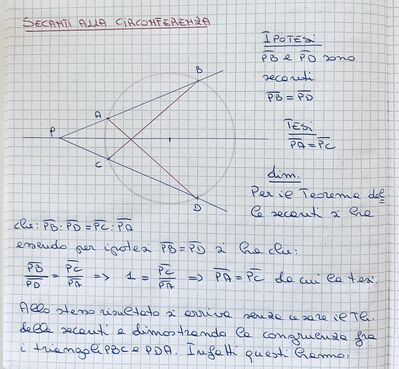 SECANTI ALLA CIRCONFERENZA
IPOTESI
PB e PD sono
secanti
PB = PD
TESI
PA = PC
dim.
Per il Teorema del
le secanti si ha
B
A
P
C
D
che: PB : PD = PC : PA
essendo per ipotesi PB = PD si ha che:
PB/PD = PC/PA => 1 = PC/PA => PA = PC da cui la tesi.
Allo stesso risultato si arriva senza usare il Th.
delle secanti e dimostrando la congruenza fra
i triangoli PBC e PDA. Infatti questi hanno: